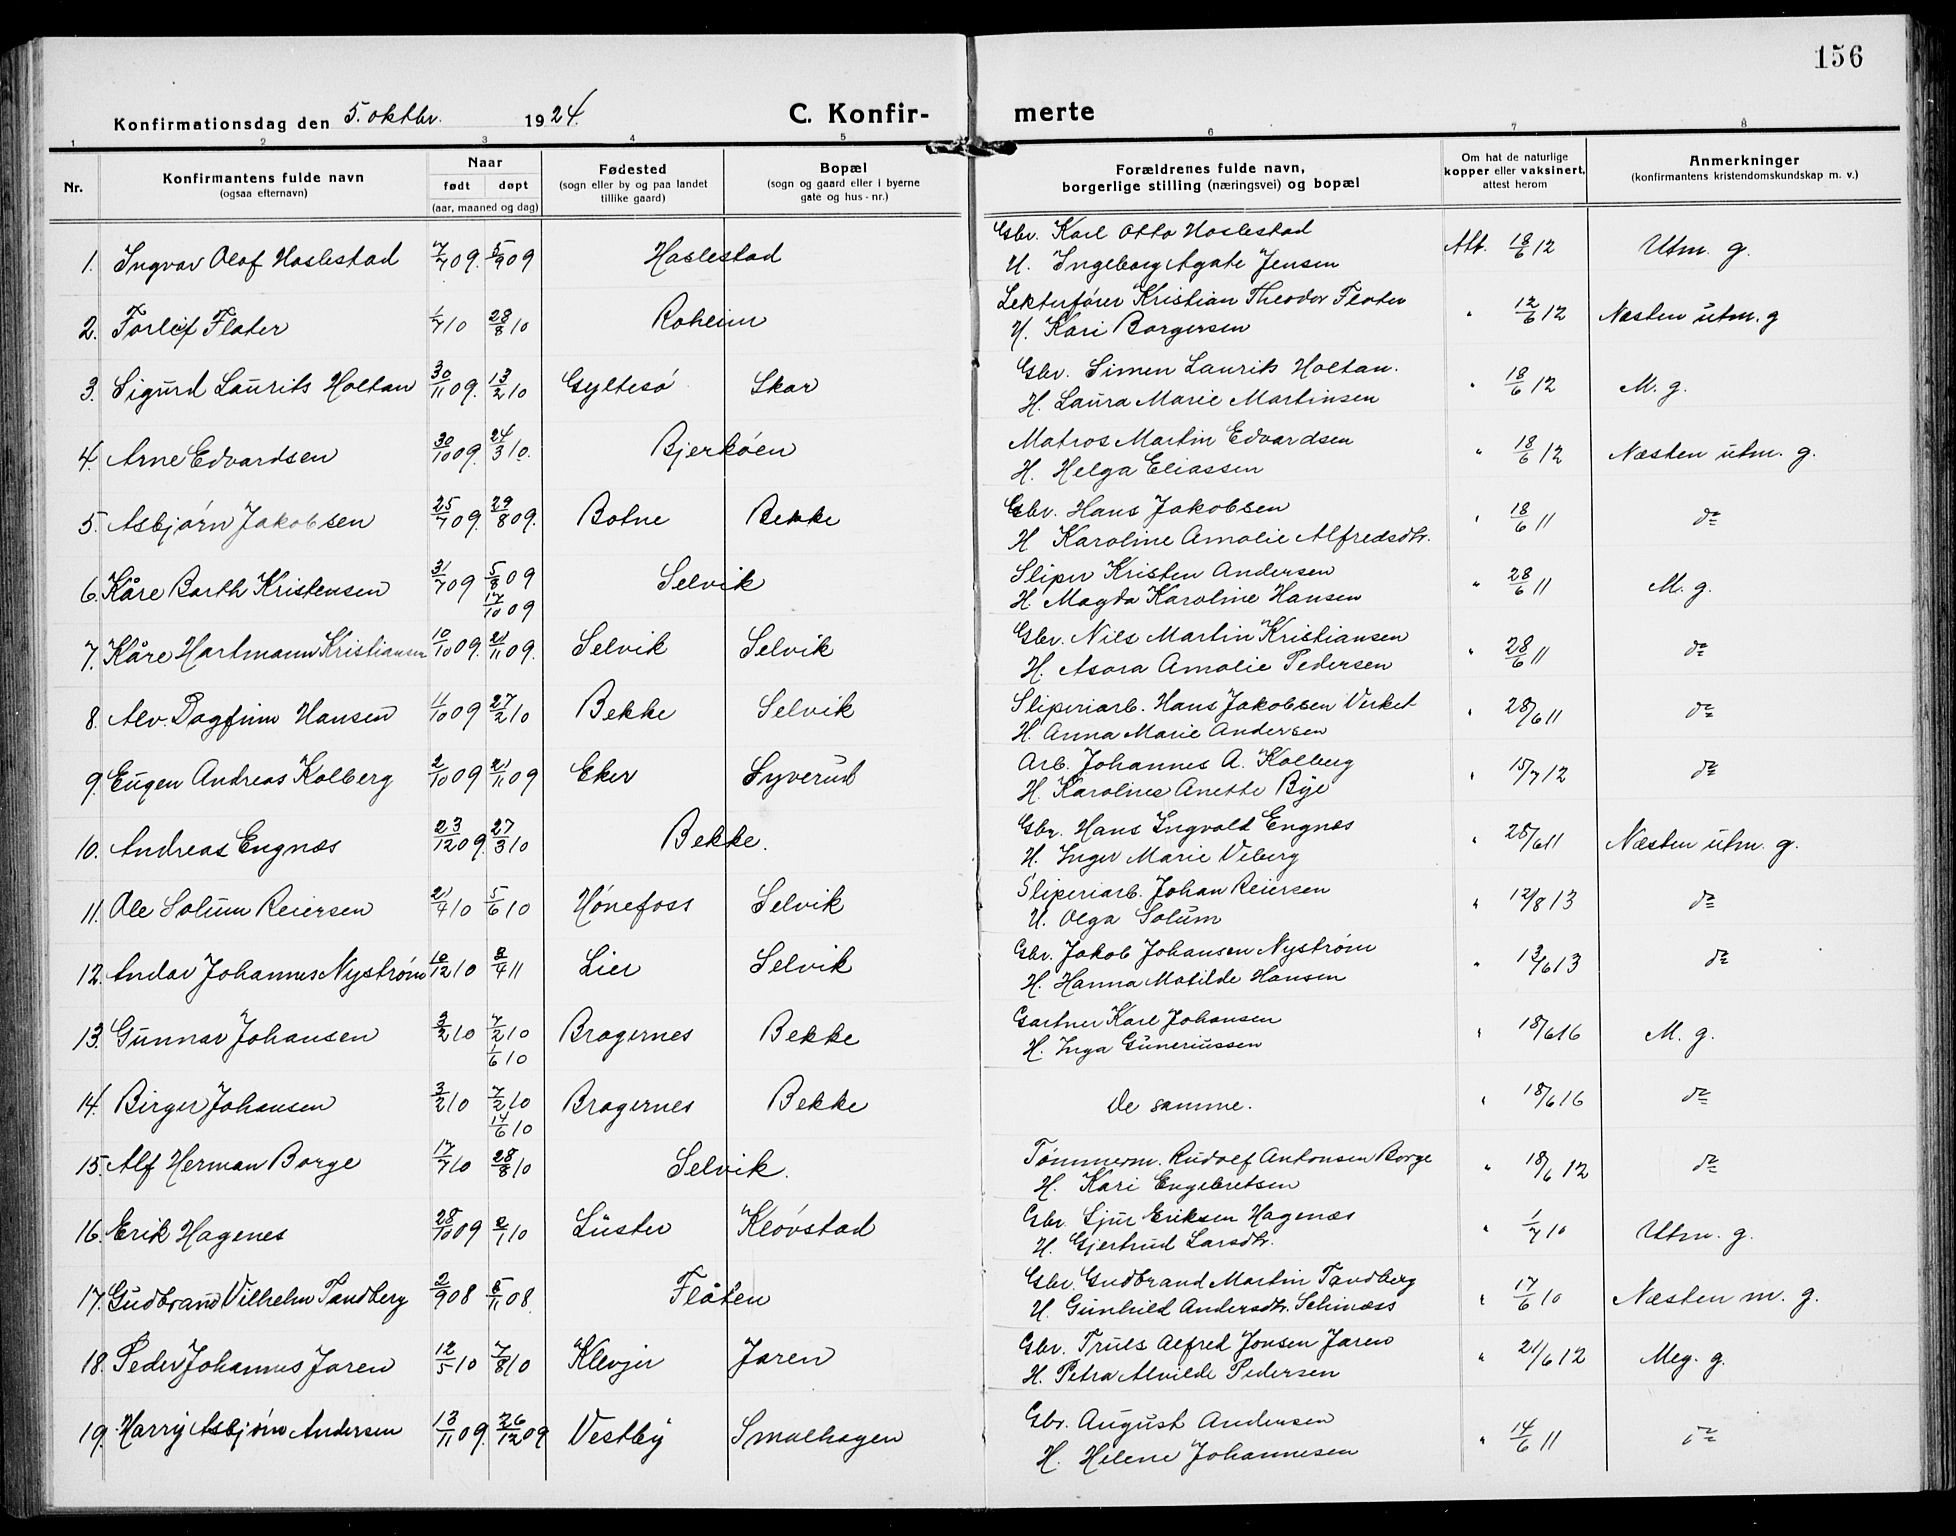 156
Konfirmationsdag den 5. oktbr. 1924. C. Konfir- merte
1 2 3 4 5 6 7 8
Nr. Konfirmantens fulde navn (ogsaa efternavn) Naar født døpt (aar, maaned og dag) Fødested (sogn eller by og paa landet tillike gaard) Bopæl (sogn og gaard eller i byerne gate og hus-nr.) Forældrenes fulde navn, borgerlige stilling (næringsvei) og bopæl Om hat de naturlige kopper eller vaksinert, attest herom Anmerkninger (konfirmantens kristendomskundskap m. v.)
1. Ingvar Olaf Haslestad 7/7 09. 5/9 09 Haslestad Gbr. Karl Otto Haslestad Att. 18/6 12 Utm. g.
H. Ingeborg Agate Jensen
2. Torleif Flater 1/7 10 28/8 10 Roheim Lekterfører Kristian Theodor Flater " 12/6 12 Næsten utm. g
H. Kari Borgersen
3. Sigurd Laurits Holtan 30/11 09. 13/2 10 Gyltesø Skar Gbr. Simen Laurits Holtan. " 18/6 12 M. g.
H. Laura Marie Martinsen
4. Arne Edvardsen 30/10 09. 24/3 10. Bjerkøen Matros Martin Edvardsen " 18/6 12 Næsten utm. g.
H. Helga Eliassen
5. Asbjørn Jakobsen 25/7 09. 29/8 09. Botne Bekke Gbr. Hans Jakobsen " 18/6 11 do
H Karoline Amalie Alfredsdtr.
6. Kåre Barth Kristensen 31/7 09 5/8 09 17/10 09 Selvik Sliper Kristen Andersen " 28/6 11 M. g.
H. Magda Karoline Hansen
7. Kåre Hartmann Kristiansen 10/10 09. 21/11 09. Selvik Selvik Gbr. Nils Martin Kristiansen " 28/6 11 do
H. Asora Amalie Pedersen
8. Alv. Dagfinn Hansen 11/10 09 27/2 10 Bekke Selvik Sliperiarb. Hans Jakobsen Verket " 28/6 11 do
H. Anna Marie Andersen
9. Eugen Andreas Kolberg 2/10 09 21/11 09 Eker Syverud Arb. Johannes A. Kolberg " 15/7 12 do
H. Karolnes Anette Bye
10. Andreas Engnæs 23/12 09. 27/3 10 Bekke. Gbr. Hans Ingvald Engnæs " 28/6 11 Næsten utm. g.
H. Inger Marie Viberg
11. Ole Solum Reiersen 21/4 10 5/6 10 Hønefoss Selvik Sliperiarb. Johan Reiersen " 12/8 13 do
H. Olga Solum
12. Andar Johannes Nystrøm 10/12 10 2/4 11 Lier Selvik Gbr. Jakob Johansen Nystrøm " 13/6 13 do
H. Hanna Matilde Hansen
13. Gunnar Johansen 3/2 10 7/2 10 1/6 10 Bragernes Bekke Gartner Karl Johansen " 18/6 16 M. g.
H. Inga Guneriussen
14. Birger Johansen 3/2 10 7/2 10 14/6 10 Bragernes Bekke De samme. " 18/6 16 do
15. Alf Herman Borge 17/7 10 28/8 10 Selvik. Tømmerm. Rudolf Antonsen Borge " 18/6 12 do
H. Kari Engebretsen
16. Erik Hagenes 28/10 09 2/1 10 Luster Kløvstad Gbr. Sjur Eriksen Hagenæs " 1/7 10 Utm. g.
H. Gjertrud Larsdtr.
17. Gudbrand Vilhelm Tandberg 2/9 08 8/11 08. Flåten Gbr. Gudbrand Martin Tandberg " 17/6 10 Næsten m. g.
H. Gunhild Andersdtr.
18. Peder Johannes Jaren 12/5 10 7/8 10 Klevjer Jaren Gbr. Truls Alfred Jonsen Jaren " 21/6 12 Meg. g.
H. Petra Alvilde Pedersen
19. Harry Asbjørn Andersen 13/11 09. 26/12 09 Vestby Smalhagen Gbr. August Andersen " 14/6 11 do
H. Helene Johannesen